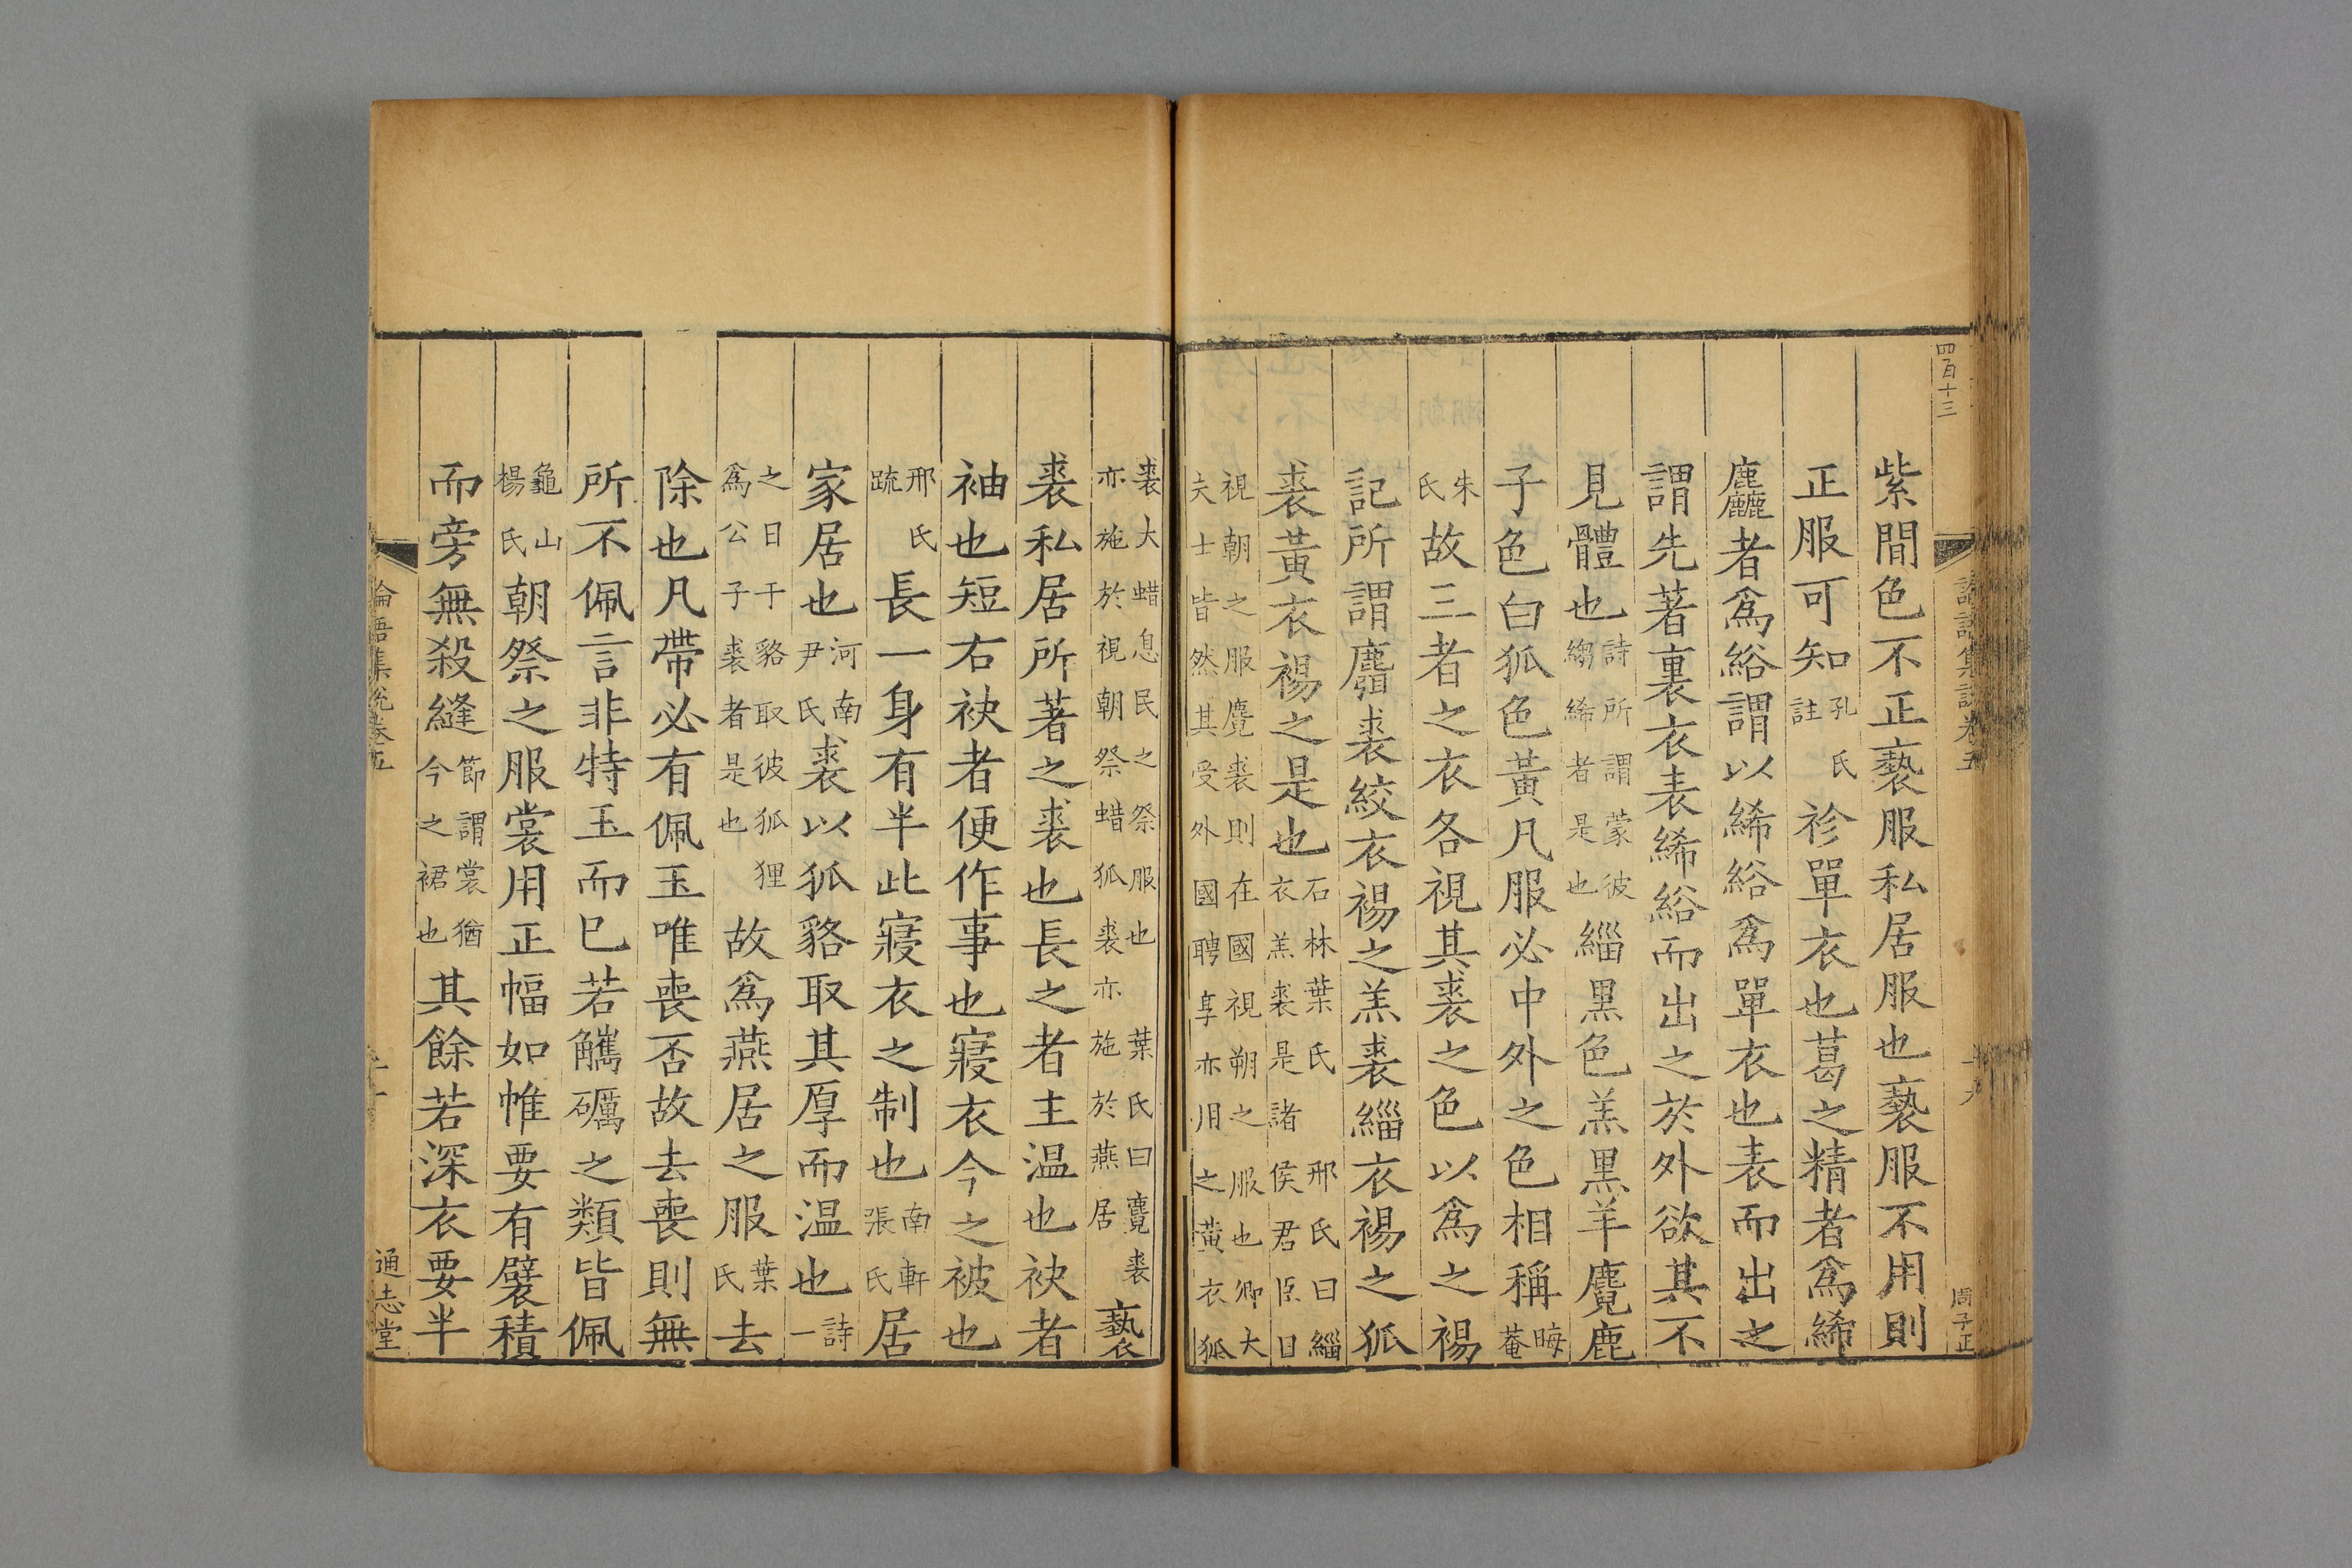 四百十三
論語集說卷五
十九
周子正
紫間色不正褻服私居服也褻服不用則
正服可知孔氏註袗單衣也葛之精者爲絺
麤者爲綌謂以絺綌爲單衣也表而出之
謂先著裏衣表絺綌而出之於外欲其不
見體也詩所謂蒙彼縐絺者是也緇黑色羔黑羊麑鹿
子色白狐色黃凡服必中外之色相稱晦菴
朱氏故三者之衣各視其裘之色以爲之裼
記所謂麛裘絞衣裼之羔裘緇衣裼之狐
裘黃衣裼之是也石林葉氏邢氏曰緇衣羔裘是諸侯君臣日
視朝之服麑裘則在國視朔之服也卿大夫士皆然其受外國聘享亦用之黃衣狐
裘大蜡息民之祭服也葉氏曰麑裘亦施於視朝祭蜡狐裘亦施於燕居褻
裘私居所著之裘也長之者主温也袂者
袖也短右袂者便作事也寢衣今之被也
邢氏疏長一身有半此寢衣之制也南軒張氏居
家居也河南尹氏裘以狐貉取其厚而温也詩一
之日于貉取彼狐狸爲公子裘者是也故爲燕居之服葉氏去
除也凡帶必有佩玉唯喪否故去喪則無
所不佩言非特玉而已若觿礪之類皆佩
龜山楊氏朝祭之服裳用正幅如帷要有襞積
而旁無殺縫節謂裳猶今之裙也其餘若深衣要半
論語集說卷五
二十
通志堂